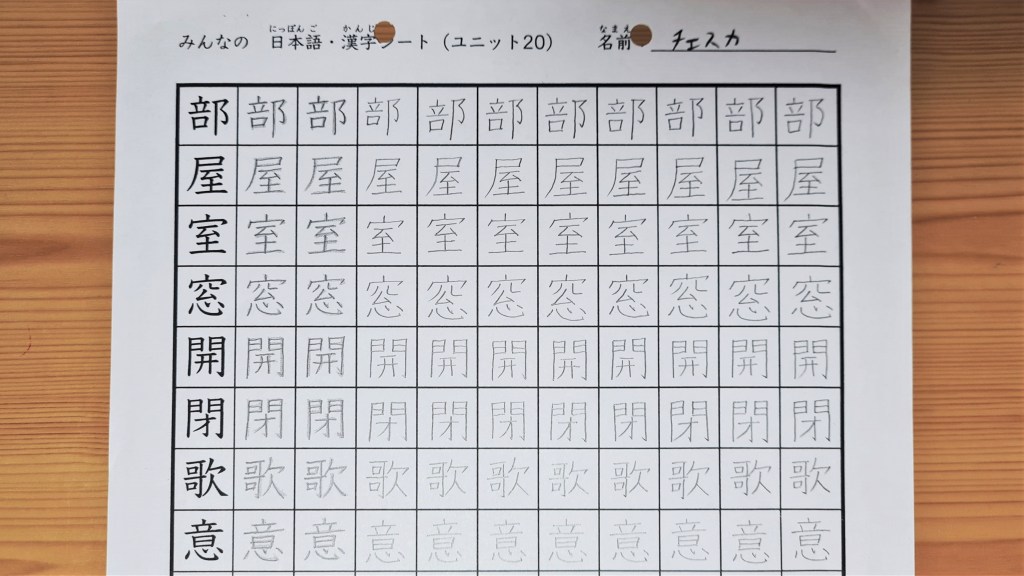 みんなの 日本語・漢字ノート（ユニット20） 名前 チェスカ
部 部 部 部 部 部 部 部 部 部 部
屋 屋 屋 屋 屋 屋 屋 屋 屋 屋 屋
室 室 室 室 室 室 室 室 室 室 室
窓 窓 窓 窓 窓 窓 窓 窓 窓 窓 窓
開 開 開 開 開 開 開 開 開 開 開
閉 閉 閉 閉 閉 閉 閉 閉 閉 閉 閉
歌 歌 歌 歌 歌 歌 歌 歌 歌 歌 歌
意 意 意 意 意 意 意 意 意 意 意